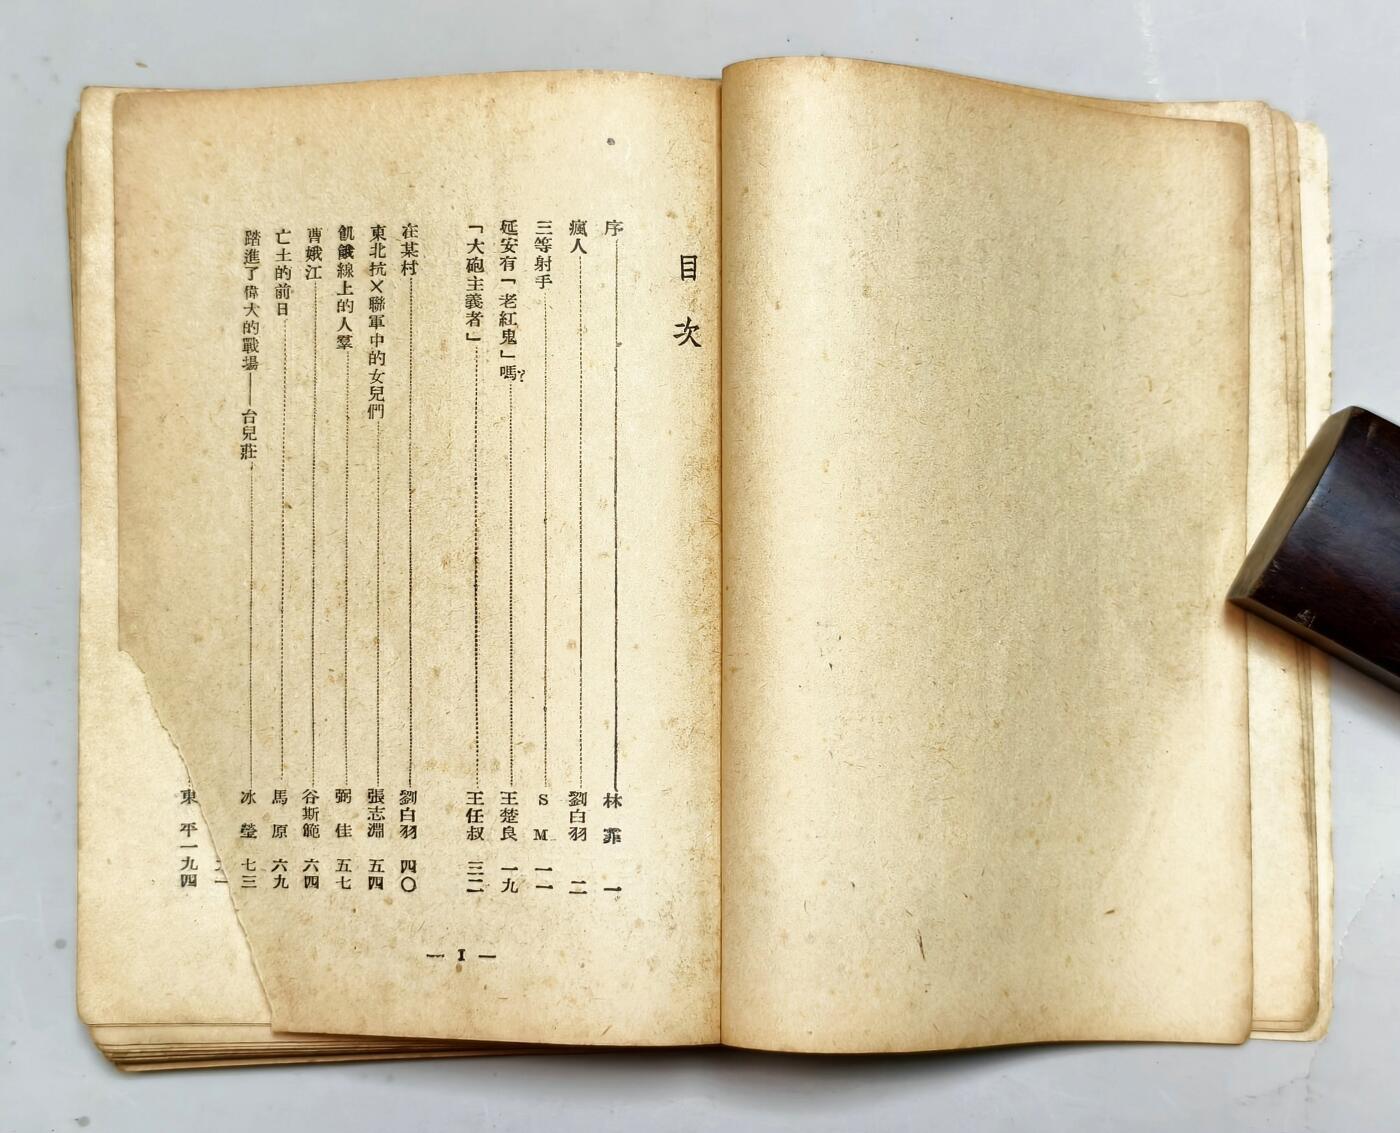 目次
序 林霏 一
瘋人 劉白羽 二
三等射手 S M 一一
延安有「老紅鬼」嗎? 王楚良 一九
「大砲主義者」 王任叔 三二
在某村 劉白羽 四〇
東北抗×聯軍中的女兒們 張志淵 五四
飢餓線上的人羣 弼佳 五七
曹娥江 谷斯範 六四
亡土的前日 馬原 六九
踏進了偉大的戰場——台兒莊 冰瑩 七三
東平 一九四
— I —